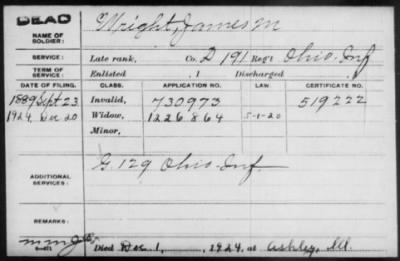 DEAD
NAME OF SOLDIER: Wright, James M
SERVICE: Late rank, Co. D 191 Reg't Ohio Inf
TERM OF SERVICE: Enlisted , 1 Discharged
DATE OF FILING. CLASS. APPLICATION NO. LAW. CERTIFICATE NO.
1889 Sept 23 Invalid, 730973 519222
1924. Dec 20 Widow, 1226864 5-1-20
Minor,
ADDITIONAL SERVICES: G. 129 Ohio Inf
REMARKS:
Died Dec 1, 1924, at Ashley, Ill.